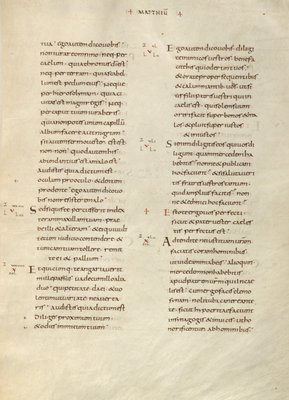 + MATTHEUM +
tua · ego autem dico vobis ·
non iurare omnino · neq· per
caelum · quia thronus di est
neq· per terram · quia scabel
lum est pedum eius · neque
per hierosolymam · quia ci
vitas est magni regis · neq·
per caput tuum iuraveris
quia non potes unum capillu
album facere aut nigrum ·
sit autem sermo vester est est
non non · quod autem his
abundantius est a malo est
audistis quia dictum est
oculum pro oculo · & dentem
pro dente · ego autem dico vobis
Sed si quis te percusserit in dex
teram maxillam tuam · prae
be illi & alteram · & ei qui vult
tecum iudicio contendere &
tunicam tuam tollere · remit
te ei & pallium
Et quicumq· te angariaverit
mille passus · vade cum illo alia
duo · qui petit a te da ei · & vo
lenti mutuari a te ne aver
taris · audistis quia dictum est
Diliges proximum tuum
& odio inimicum tuum
Ego autem dico vobis · diligi
te inimicos vestros · benefa
cite his qui oderunt vos
& orate pro persequentibus
& calumniantib· vos · ut si
tis filii patris vestri qui in
caelis est · qui solem suum
oriri facit super bonos & ma
los · & pluit super iustos
& iniustos ·
Si enim diligitis eos qui vos di
ligunt · quam mercedem ha
bebitis · nonne & publicani
hoc faciunt · & si salutaveri
tis fratres vestros tantum ·
quid amplius facitis · non
ne & ethnici hoc faciunt ·
Estote ergo vos perfecti si
cut & pater vester caeles
tis perfectus est ·
Adtendite ne iustitiam vestram
faciatis coram hominibus
ut videamini ab eis · alioquin
mercedem non habebitis
apud patrem vrm qui in cae
lis est · cum ergo facis elemo
sinam · noli tuba canere ante
te · sicut hypocritae faciunt
in synagogis & in vicis · ut ho
norificentur ab hominibus ·